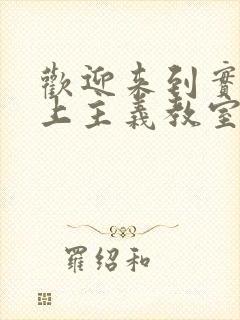 歡迎來到實
上主義教室
羅紹和